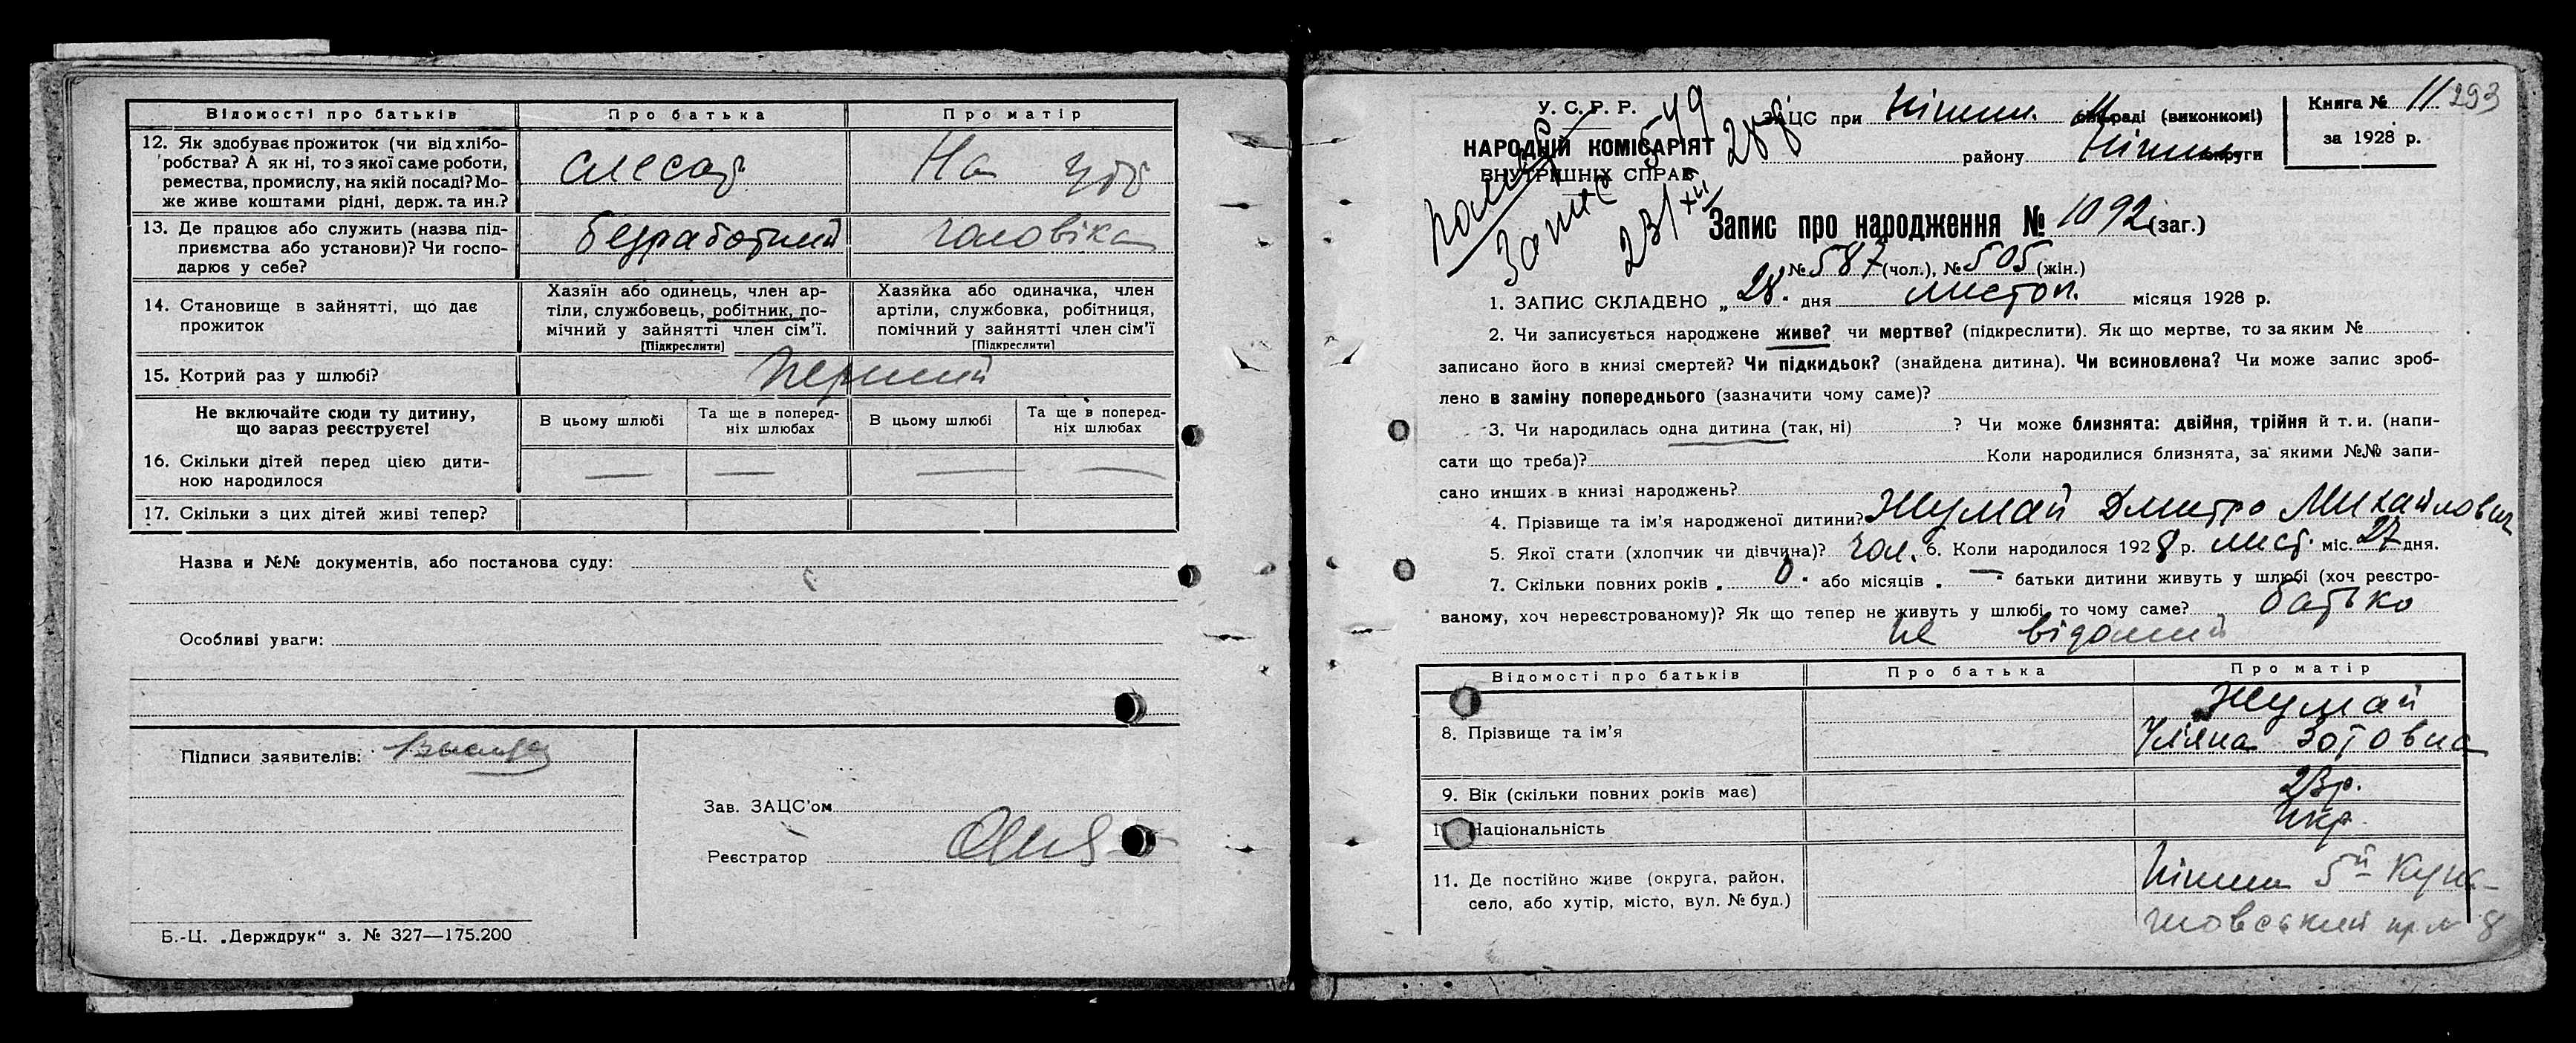 Відомості про батьків
Про батька
Про матір
12. Як здобуває прожиток (чи від хлібо-
робства? А як ні, то з якої саме роботи,
ремества, промислу, на якій посаді? Мо-
же живе коштами рідні, держ. та ин.?
слесар
На утр
13. Де працює або служить (назва під-
приємства або установи)? Чи госпо-
дарює у себе?
безработний
чоловіка
14. Становище в зайнятті, що дає
прожиток
Хазяїн або одинець, член ар-
тіли, службовець, робітник, по-
мічний у зайнятті член сім'ї.
[Підкреслити]
Хазяйка або одиначка, член
артіли, службовка, робітниця,
помічний у зайнятті член сім'ї
[Підкреслити]
15. Котрий раз у шлюбі?
перший
Не включайте сюди ту дитину,
що зараз реєструєте!
В цьому шлюбі
Та ще в поперед-
ніх шлюбах
В цьому шлюбі
Та ще в поперед-
ніх шлюбах
16. Скільки дітей перед цією дити-
ною народилося
— — — —
17. Скільки з цих дітей живі тепер?
Назва и №№ документів, або постанова суду:
Особливі уваги:
Підписи заявителів:
Зав. ЗАЦС'ом
Реєстратор
Б.-Ц. „Держдрук" з. № 327—175.200
У. С. Р. Р.
НАРОДНІЙ КОМІСАРІЯТ
ВНУТРІШНІХ СПРАВ
Запис
549
23/XII 28 р.
ЗАЦС при Ніжин. раді (виконкомі)
району Ніжин округи
Книга № 11
293
за 1928 р.
Запис про народження № 1092 (заг.)
№ 587 (чол.), № 505 (жін.)
1. ЗАПИС СКЛАДЕНО „ 28. дня листоп. місяця 1928 р.
2. Чи записується народжене живе? чи мертве? (підкреслити). Як що мертве, то за яким №
записано його в книзі смертей? Чи підкидьок? (знайдена дитина). Чи всиновлена? Чи може запис зроб-
лено в заміну попереднього (зазначити чому саме)?
3. Чи народилась одна дитина (так, ні) ? Чи може близнята: двійня, трійня й т. и. (напи-
сати що треба)? Коли народилися близнята, за якими №№ запи-
сано инших в книзі народжень?
4. Прізвище та ім'я народженої дитини? Жумай Дмитро Михайлович
5. Якої стати (хлопчик чи дівчина)? чол. 6. Коли народилося 1928 р. лист. міс. 27 дня.
7. Скільки повних років „ 0 " або місяців „ — " батьки дитини живуть у шлюбі (хоч реєстро-
ваному, хоч нереєстрованому)? Як що тепер не живуть у шлюбі, то чому саме? батько
не відомий
Відомості про батьків
Про батька
Про матір
8. Прізвище та ім'я
Жумай
Уляна Зотовна
9. Вік (скільки повних років має)
23 р.
10. Національність
Укр
11. Де постійно живе (округа, район,
село, або хутір, місто, вул. № буд.)
Ніжин 5й Куна-
шовський пр № 8